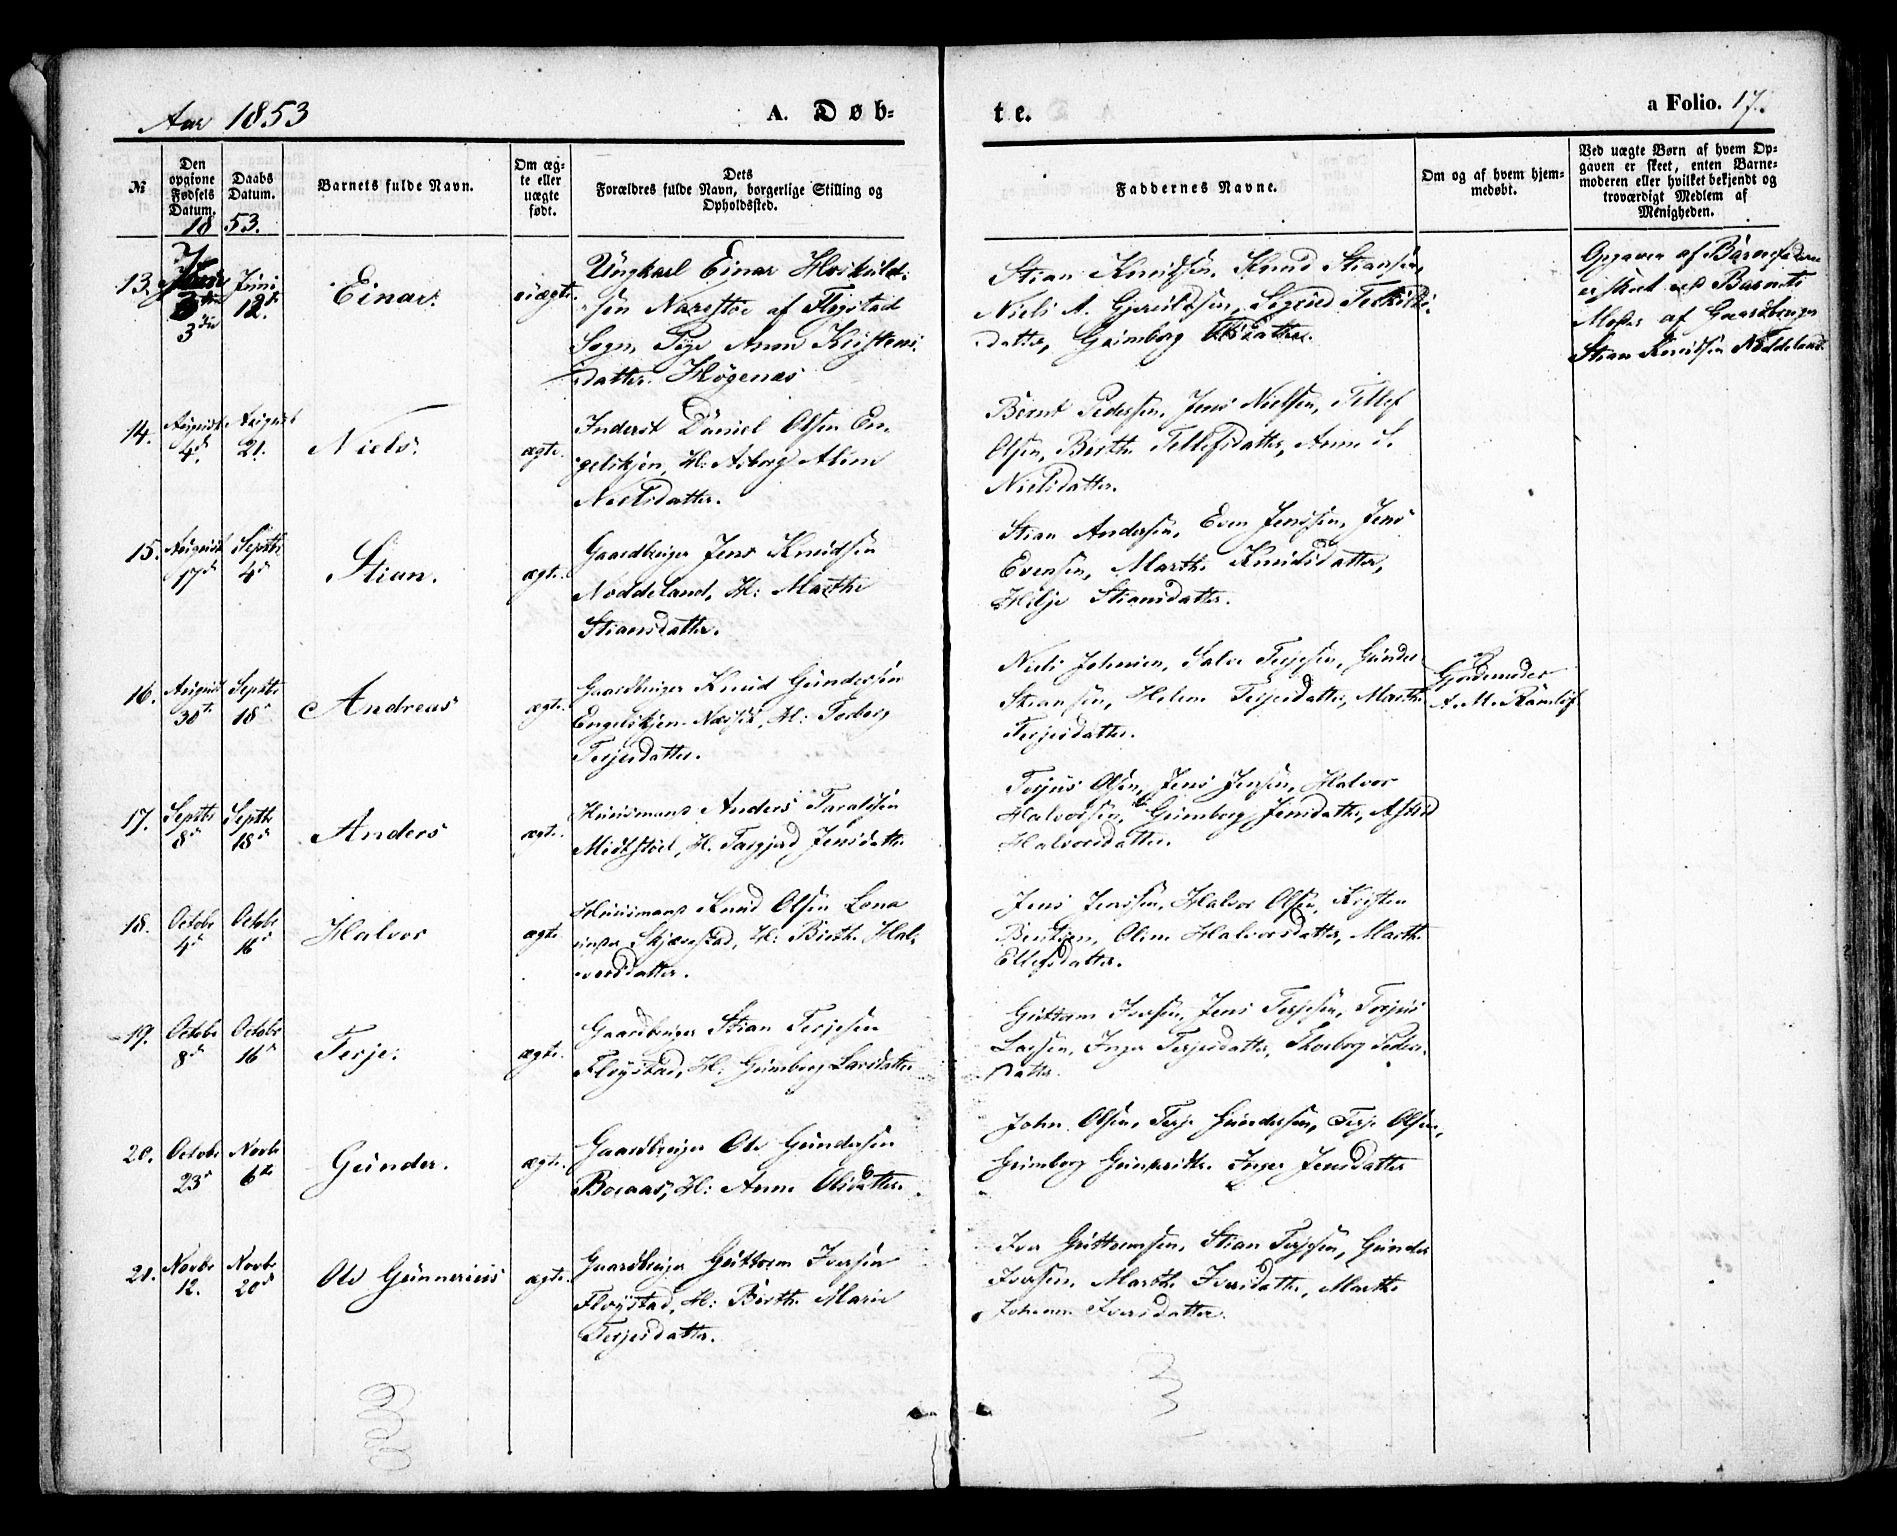 Aar 1853
A. Døb-
te.
a Folio. 17.
№
Den
opgivne
Fødsels
Datum.
Daabs
Datum.
Barnets fulde Navn.
Om æg-
te eller
uægte
født.
Dets
Forældres fulde Navn, borgerlige Stilling og
Opholdssted.
Faddernes Navne.
Om og af hvem hjem-
medøbt.
Ved uægte Børn af hvem Op-
gaven er skeet, enten Barne-
moderen eller hvilket bekjendt og
troværdigt Medlem af
Menigheden.
18 53.
13.
3die
Juni
12.
Einar.
uægte.
Ungkarl Einar Hoskuld-
sen Narestøe af Flogstad
Sogn, Pige Anne Kristens-
datter Høgenæs
Stian Knudsen, Knud Stiansen,
Niels A. Gjeruldsen, Sigrid Terkilds-
datter, Gunborg Olsdatter.
Opgaven af Barnefaderen
er skeet ved Barnets
Moder af Gaardbruger
Stian Knudsen Nøddeland.
14.
August
4d.
August
21.
Niels.
ægte.
Inderst Daniel Olsen En-
gelskjøn, H: Asborg Aline
Nielsdatter.
Bernt Pedersen, Jens Nielsen, Tellef
Olsen, Berthe Tellefsdatter, Anne S.
Nielsdatter.
15.
August
17d
Septbr
4d
Stian.
ægte.
Gaardbruger Jens Knudsen
Nøddeland, H: Marthe
Stiansdatter.
Stian Andersen, Even Jenssen, Jens
Evensen, Marthe Knudsdatter,
Helje Stiansdatter.
16.
August
30te
Septbr
18d
Andreas
ægte.
Gaardbruger Knud Gundersen
Engelskjøn Næsset, H: Torborg
Terjesdatter.
Niels Johnsen, Salve Terjesen, Gunder
Stiansen, Helene Terjesdatter, Marthe
Terjesdatter.
af
Gjordemoder
A. M. Ramlef
17.
Septbr
8d
Septbr
18d
Anders
ægte.
Huusmand Anders Taraldsen
Midtstøel, H. Torgjerd Jensdatter
Torjus Olsen, Jens Jensen, Halvor
Halvorsen, Gunborg Jensdatter, Astrid
Halvorsdatter.
18.
Octobr
4d
Octobr
16d
Halvor
ægte
Huusmand Knud Olsen Lona
under Skjænstad, H: Birthe Hal-
vorsdatter.
Jens Jenssen, Halvor Olsen, Kristen
Bentsen, Olene Halvorsdatter, Marthe
Ellefsdatter.
19.
Octobr
8d
Octobr
16d
Terje.
ægte.
Gaardbruger Stian Terjesen
Fløystad, H: Gunborg Larsdatter
Guttorm Iversen, Jens Terjesen, Torjus
Larsen, Inger Terjesdatter, Thorborg Peders-
datter
20.
Octobr
23d
Novbr
6te
Gunder.
ægte.
Gaardbruger Ole Gundersen
Boraas, H: Anne Olsdatter.
John Olsen, Terje Gundersen, Terje Olsen,
Gunborg Gundersdtr. Inger Jensdatter
21.
Novbr
12.
Novbr
20d
Ole Gunnerius
ægte.
Gaardbruger Guttorm Iversen
Fløystad, H: Birthe Marie
Terjesdatter.
Iver Guttormsen, Stian Terjesen, Gunder
Iversen, Marthe Iversdatter, Marthe
Johanne Iversdatter.